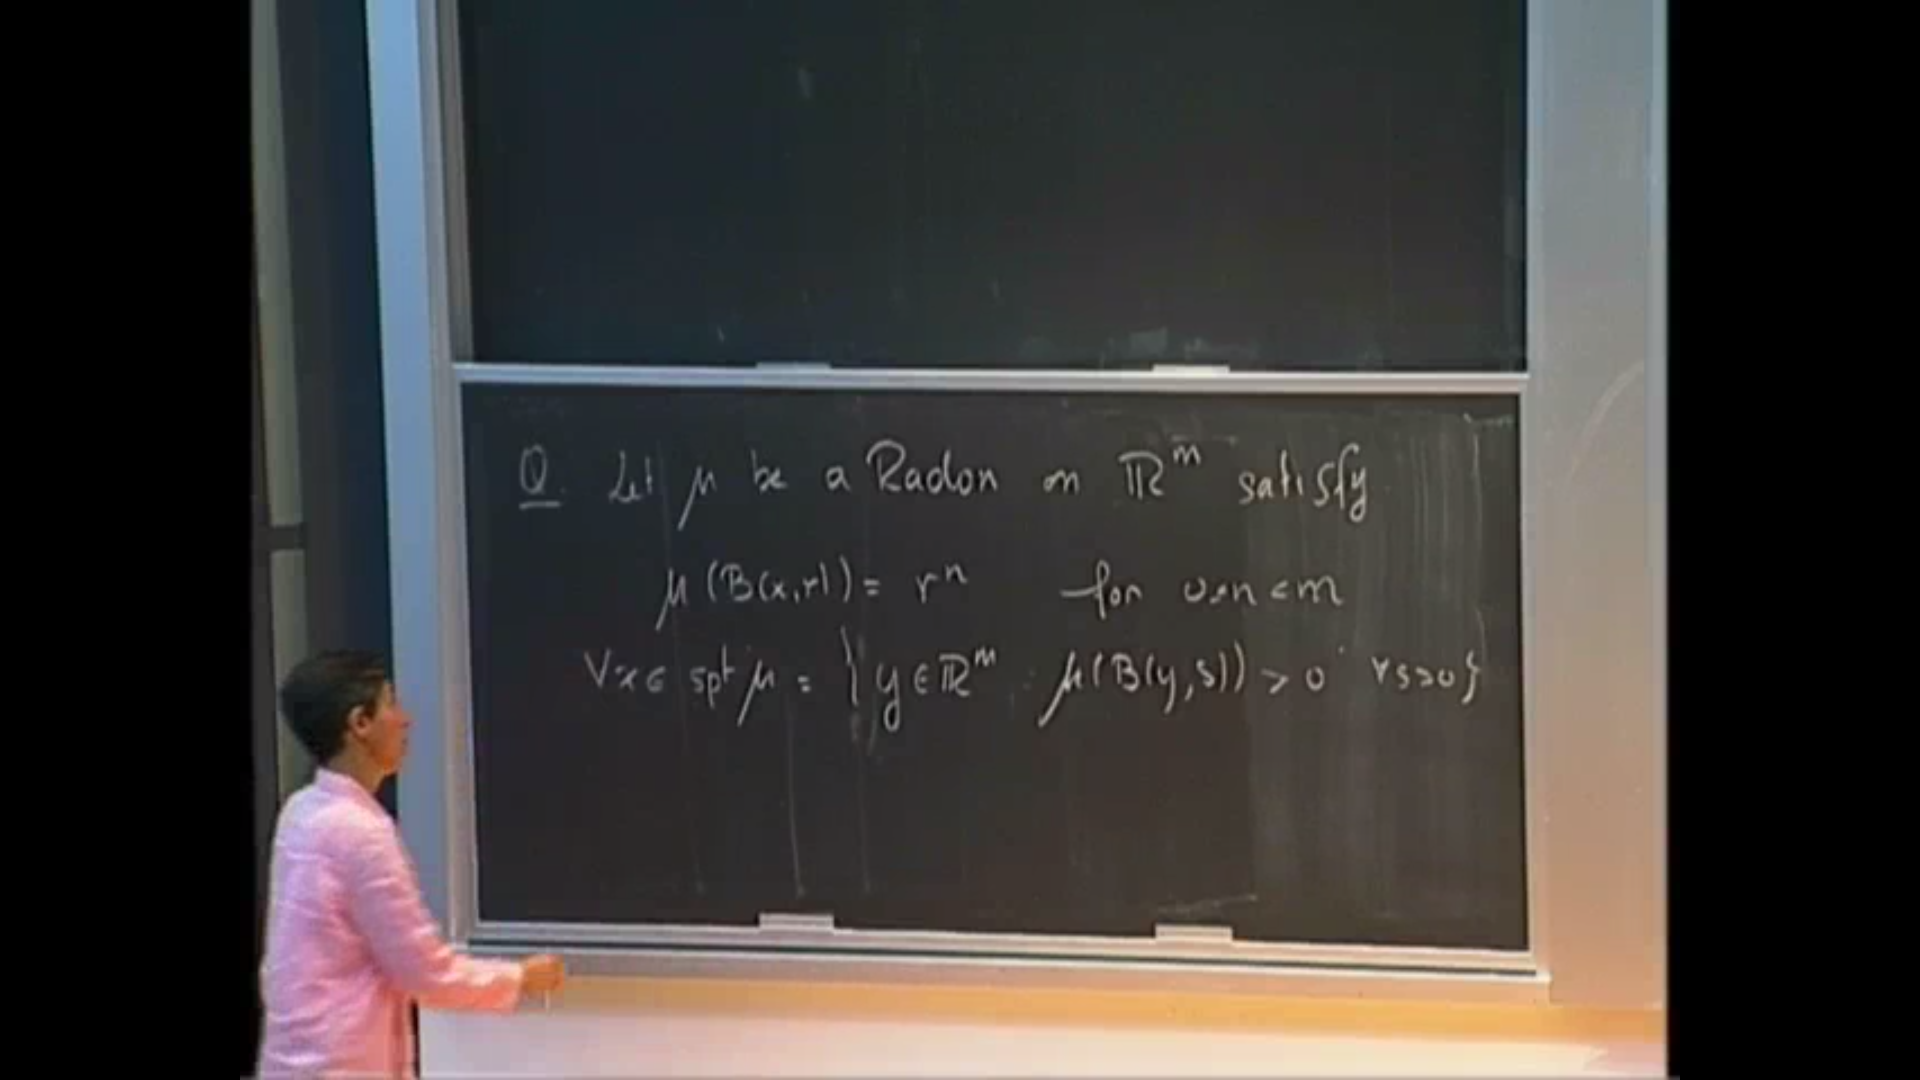 Q. Let μ be a Radon on ℝᵐ satisfy
μ(B(x,r)) = rⁿ for 0<n<m
∀x∈ spt μ = {y∈ℝᵐ : μ(B(y,s)) > 0 ∀s>0}